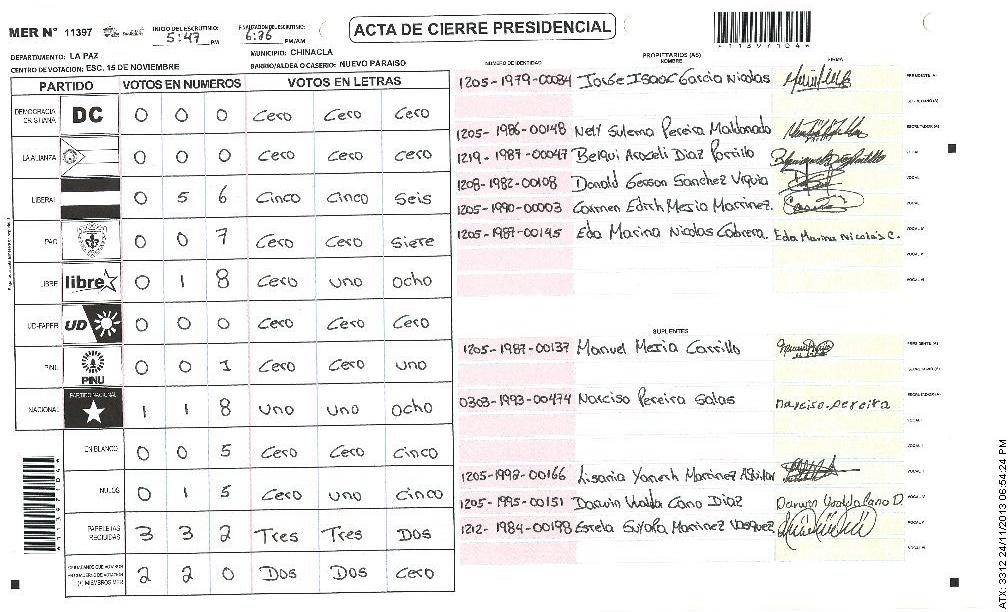 MER N° 11397 INICIO DEL ESCRUTINIO: 5:47 PM FINALIZACION DEL ESCRUTINIO: PM/AM
ACTA DE CIERRE PRESIDENCIAL
DEPARTAMENTO: LA PAZ MUNICIPIO: CHINACLA
CENTRO DE VOTACION: ESC. 15 DE NOVIEMBRE BARRIO/ALDEA O CASERIO: NUEVO PARAISO
PARTIDO VOTOS EN NUMEROS VOTOS EN LETRAS
DEMOCRACIA CRISTIANA DC 0 0 0 Cero Cero Cero
LA ALIANZA 0 0 0 Cero Cero Cero
LIBERAL 0 5 6 Cinco Cinco Seis
PAC 0 0 7 Cero Cero Siete
LIBRE libre 0 1 8 Cero uno Ocho
UD-FAPER UD 0 0 0 Cero Cero Cero
PINU PINU 0 0 1 Cero Cero uno
NACIONAL PARTIDO NACIONAL 1 1 8 uno uno Ocho
EN BLANCO 0 0 5 Cero Cero Cinco
NULOS 0 1 5 Cero uno Cinco
PAPELETAS RECIBIDAS 3 3 2 Tres Tres Dos
2 2 0 Dos Dos Cero
PROPIETARIOS (AS)
NUMERO DE IDENTIDAD NOMBRE FIRMA
1205-1979-00084 Jorge Isaac Garcia Nicolas PRESIDENTE (A)
SECRETARIO (A)
1205-1986-00148 Nely Sulema Pereira Maldonado ESCRUTADOR (A)
1219-1987-00047 Belqui Araceli Diaz Portillo VOCAL
1208-1982-00108 Donald Gerson Sanchez Urquia VOCAL
1205-1990-00003 Carmen Edith Mejia Martinez. VOCAL
1205-1987-00145 Eda Marina Nicolas Cabrera. Eda Marina Nicolas C. VOCAL V
VOCAL VI
SUPLENTES
1205-1987-00137 Manuel Mejia Carrillo PRESIDENTE (A)
SECRETARIO (A)
0303-1993-00474 Narciso Pereira Salas narciso.pereira ESCRUTADOR (A)
VOCAL I
1205-1992-00166 Martinez Aguilar VOCAL
1205-1995-00151 Darwin Cano Diaz Darwin Cano D. VOCAL
1212-1984-00198 Estela Suyapa Martinez Vasquez VOCAL V
VOCAL VI
ATX: 3312 24/11/2013 06:54:24 PM